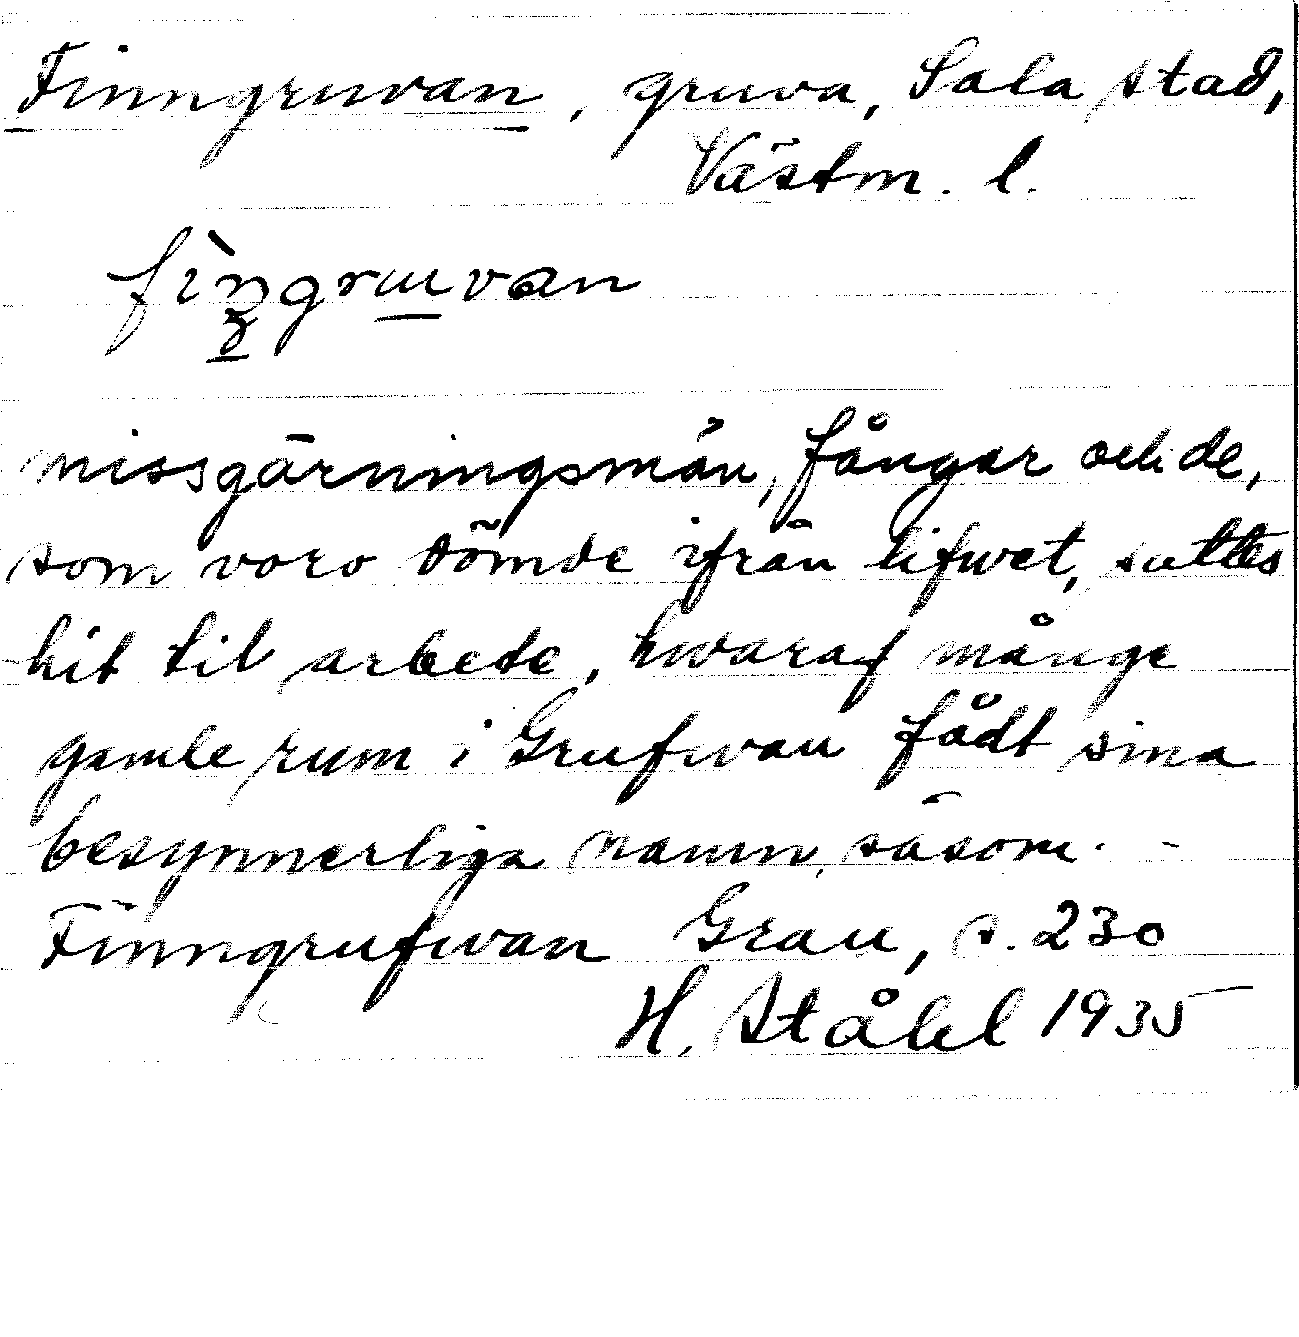 Finngruvan, gruva, Sala stad,
Västm. l.
fìngruvan
missgärningsmän, fångar och de,
som voro dömde ifrån lifwet, sattes
hit til arbete, hwaraf månge
gamle rum i Grufwan fådt sina
besynnerliga namn, såsom. -
Finngrufwan Grau, s. 230
H. Ståhl 1935